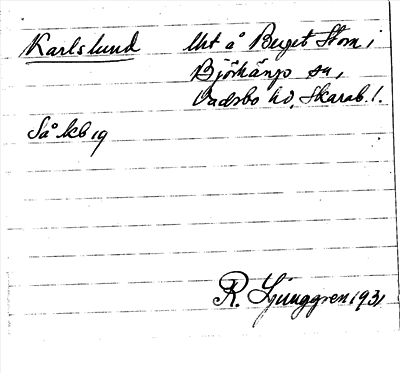 Karlslund Utr å Berget Stom i
Björkängs sn,
Vadsbo hd, Skarab. l.
Så kb 19
R. Ljunggren 1931